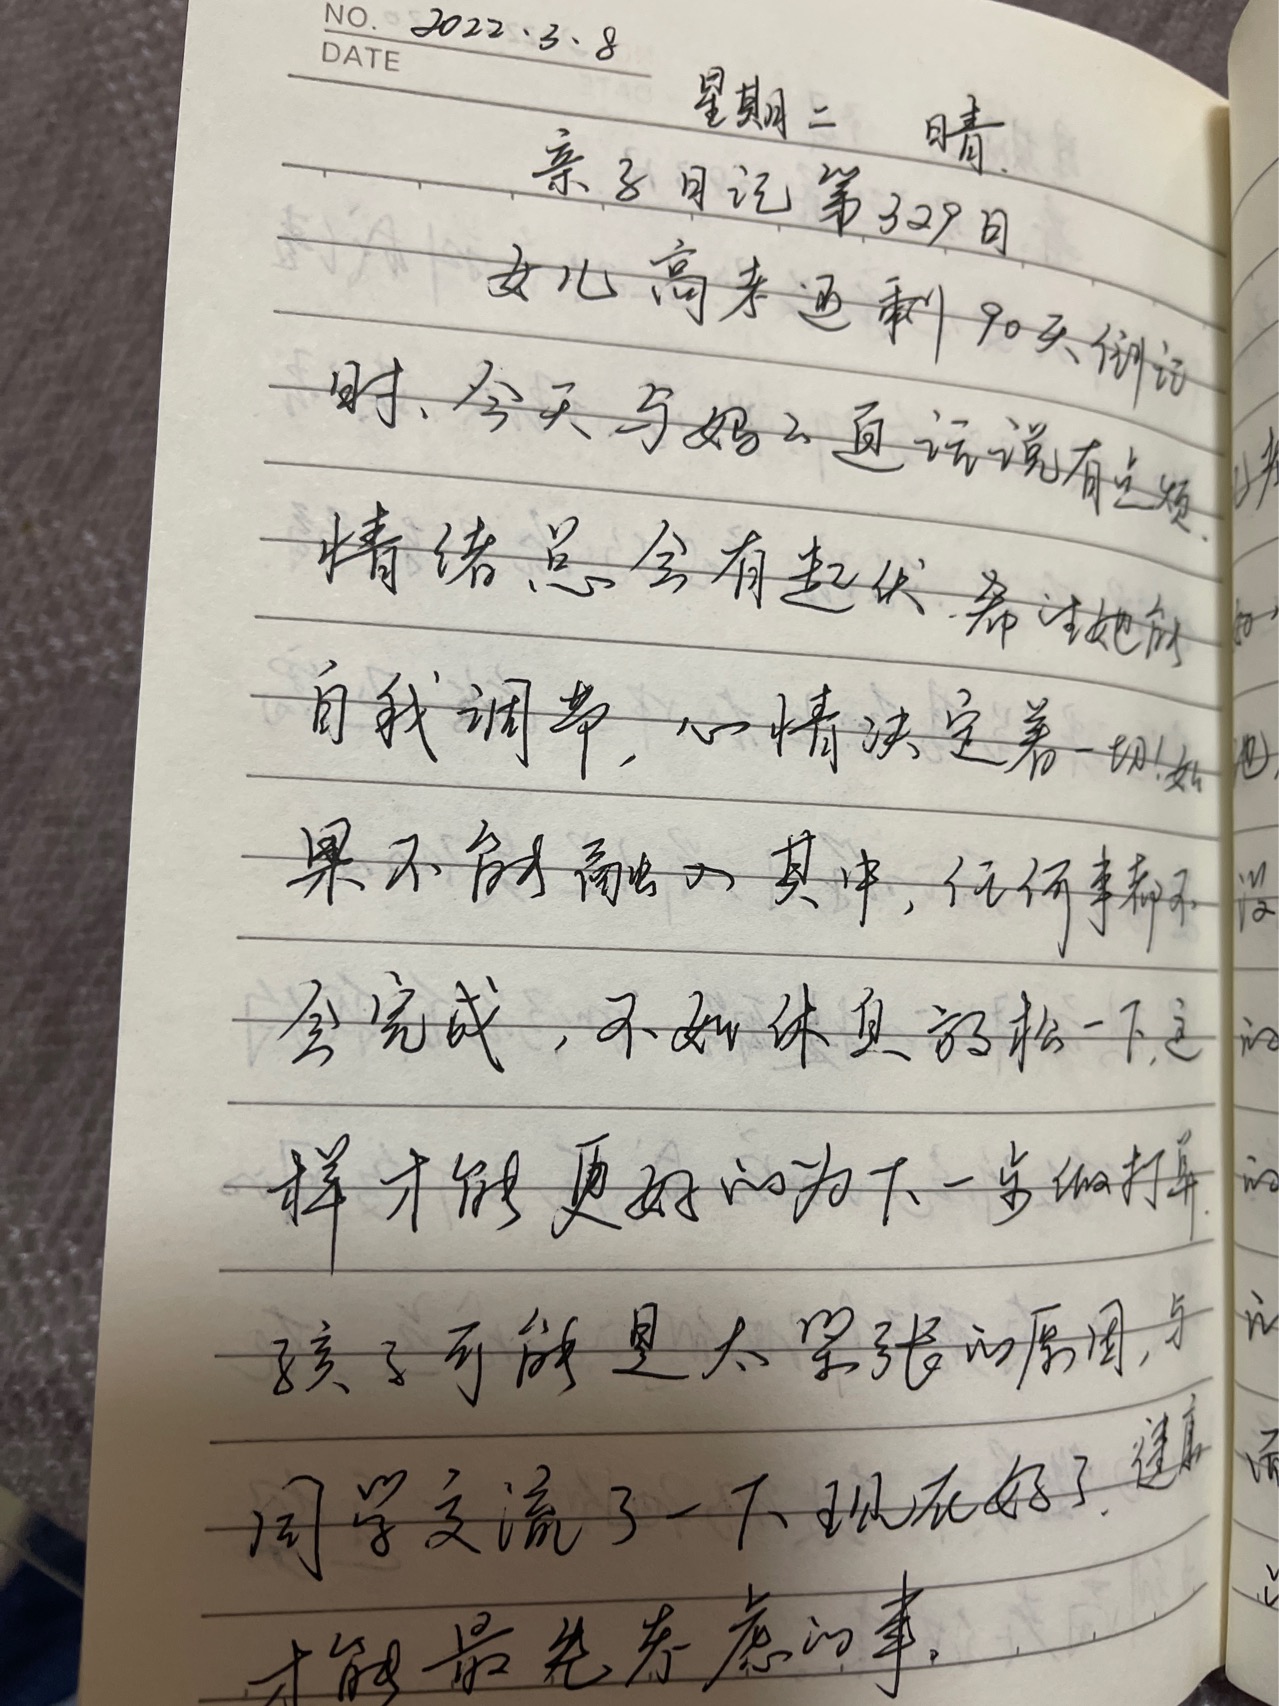 NO. 2022.3.8
DATE
星期二 晴.
亲子日记第329日
女儿高考还剩90天倒记
时、今天与妈々通话说有点烦.
情绪总会有起伏.希望她能
自我调节,心情决定着一切!如
果不能融入其中,任何事都不
会完成,不如休息放松一下,这
样才能更好的为下一步做打算.
孩子可能是太紧张的原因,与
同学交流了一下现在好了.健康
才能最先考虑的事.